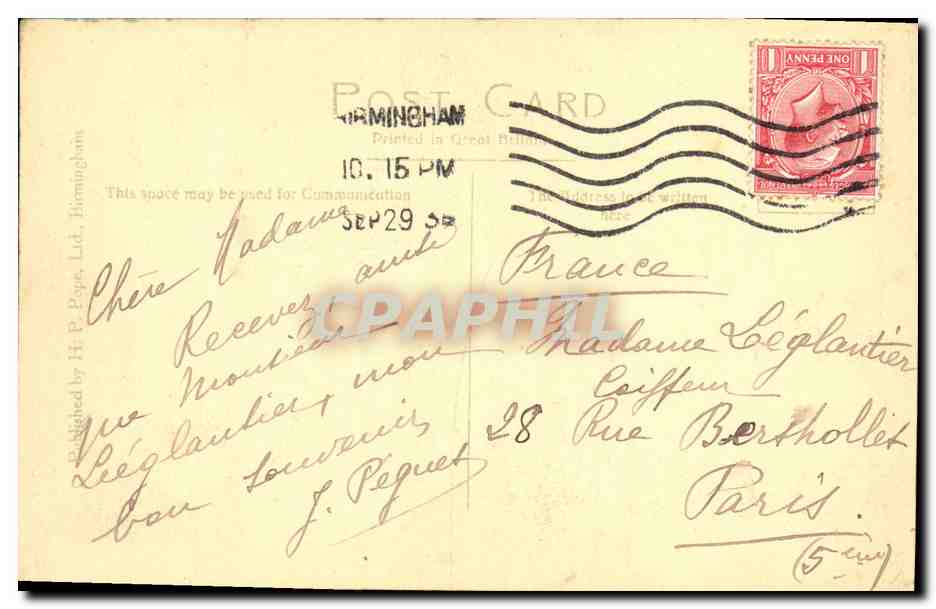 POST CARD
Printed in Great Britain
BIRMINGHAM
10. 15 PM
SEP 29
ONE PENNY
1 1
This space may be used for Communication
The Address to be written
here
Published by H. P. Pope, Ltd., Birmingham
Chère Madame
Recevez ainsi
que Monsieur
Léglantier, mon
bon souvenir
J. Péguet
France
Madame Léglantier
Coiffeur
28 Rue Berthollet
Paris.
(5ème)
CPAPHIL